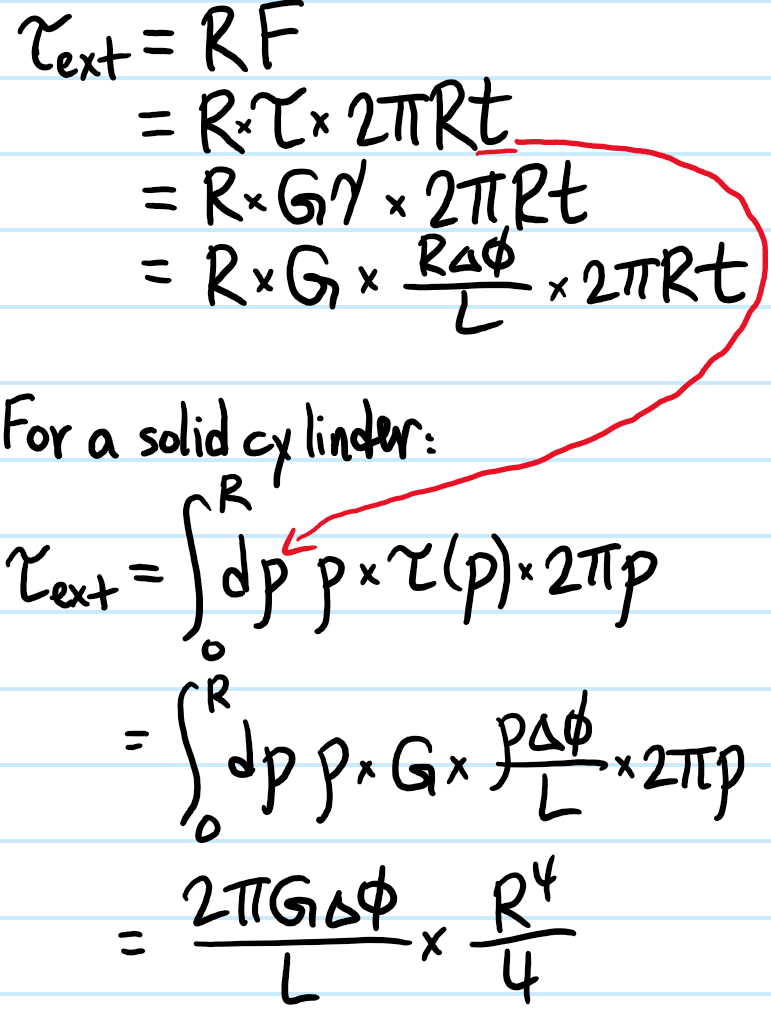 τ_ext = RF
= R × τ × 2πRt
= R × Gγ × 2πRt
= R × G × RΔϕ/L × 2πRt
For a solid cylinder:
τ_ext = ∫₀ᴿ dρ ρ × τ(ρ) × 2πρ
= ∫₀ᴿ dρ ρ × G × ρΔϕ/L × 2πρ
= 2πGΔϕ/L × R⁴/4